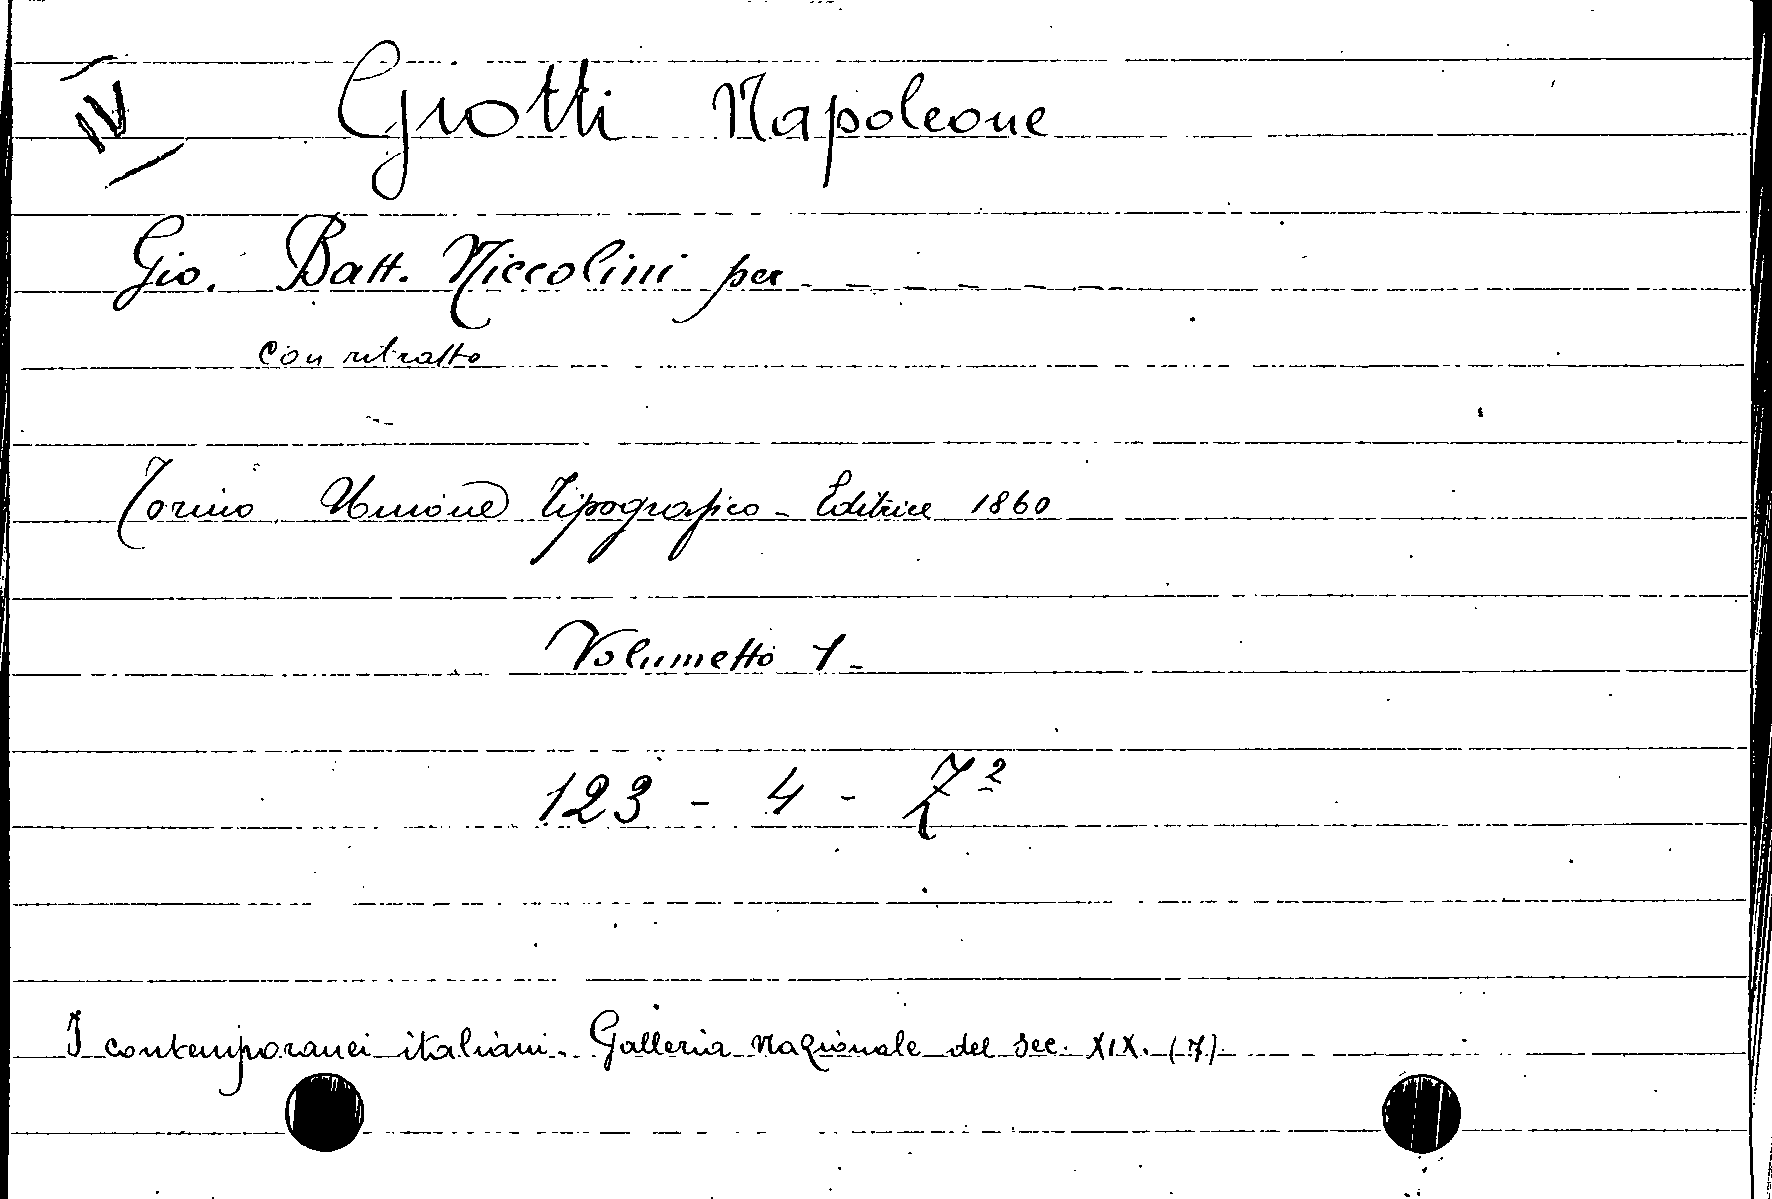 IV
Giotti Napoleone
Gio. Batt. Niccolini per - - - - -
con ritratto
Torino Unione Tipografico - Editrice 1860
Volumetto 1 -
123 - 4 - Z²
I contemporanei italiani. Galleria nazionale del sec. XIX. (7).